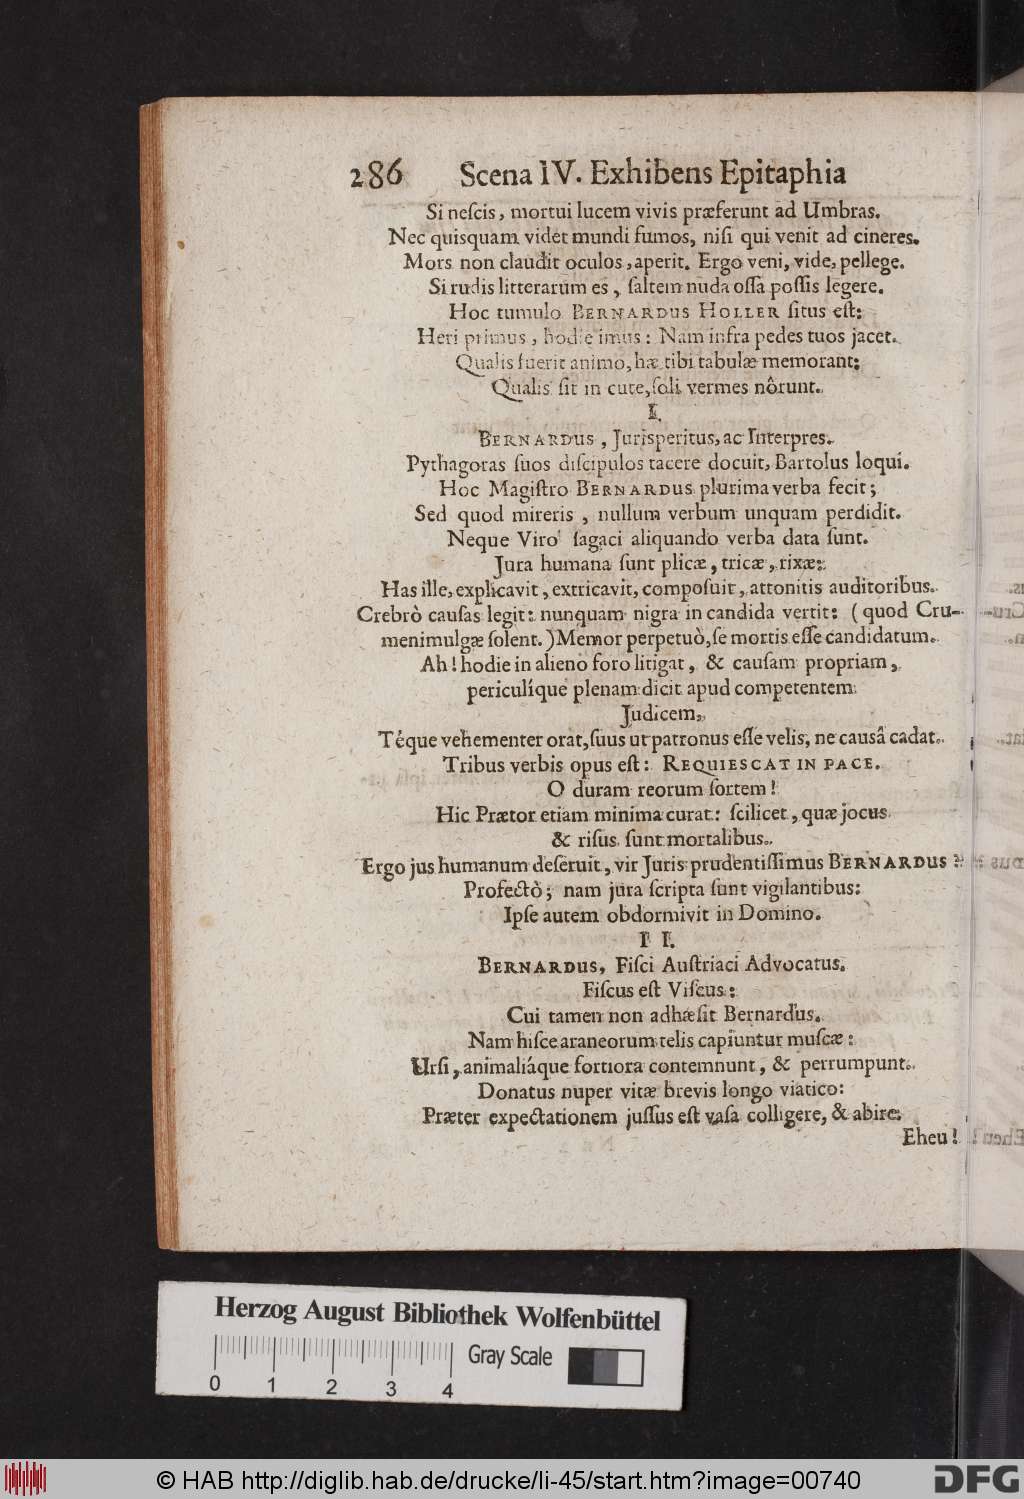 286 Scena IV. Exhibens Epitaphia
Si neſcis, mortui lucem vivis præferunt ad Umbras.
Nec quisquam videt mundi fumos, niſi qui venit ad cineres.
Mors non claudit oculos, aperit. Ergo veni, vide, pellege.
Si rudis litterarum es, ſaltem nuda oſſa poſſis legere.
Hoc tumulo BERNARDUS HOLLER ſitus eſt:
Heri primus, hodie imus: Nam infra pedes tuos jacet.
Qualis fuerit animo, hæ tibi tabulæ memorant:
Qualis ſit in cute, ſoli vermes nôrunt.
I.
BERNARDUS, Jurisperitus, ac Interpres.
Pythagoras ſuos diſcipulos tacere docuit, Bartolus loqui.
Hoc Magiſtro BERNARDUS plurima verba fecit;
Sed quod mireris, nullum verbum unquam perdidit.
Neque Viro ſagaci aliquando verba data ſunt.
Jura humana ſunt plicæ, tricæ, rixæ:
Has ille, explicavit, extricavit, compoſuit, attonitis auditoribus.
Crebrò cauſas legit: nunquam nigra in candida vertit: (quod Cru-
menimulgæ ſolent.) Memor perpetuò, ſe mortis eſſe candidatum.
Ah! hodie in alieno foro litigat, & cauſam propriam,
periculíque plenam dicit apud competentem
Judicem.
Téque vehementer orat, ſuus ut patronus eſſe velis, ne causâ cadat.
Tribus verbis opus eſt: REQUIESCAT IN PACE.
O duram reorum ſortem!
Hic Prætor etiam minima curat: ſcilicet, quæ jocus
& riſus ſunt mortalibus.
Ergo jus humanum deſeruit, vir Juris prudentiſſimus BERNARDUS?
Profectò; nam jura ſcripta ſunt vigilantibus:
Ipſe autem obdormivit in Domino.
II.
BERNARDUS, Fiſci Auſtriaci Advocatus.
Fiſcus eſt Viſcus:
Cui tamen non adhæſit Bernardus.
Nam hiſce araneorum telis capiuntur muſcæ:
Urſi, animaliáque fortiora contemnunt, & perrumpunt.
Donatus nuper vitæ brevis longo viatico:
Præter expectationem juſſus eſt vaſa colligere, & abire.
Eheu!
Herzog August Bibliothek Wolfenbüttel
0 1 2 3 4 Gray Scale
© HAB http://diglib.hab.de/drucke/li-45/start.htm?image=00740
DFG